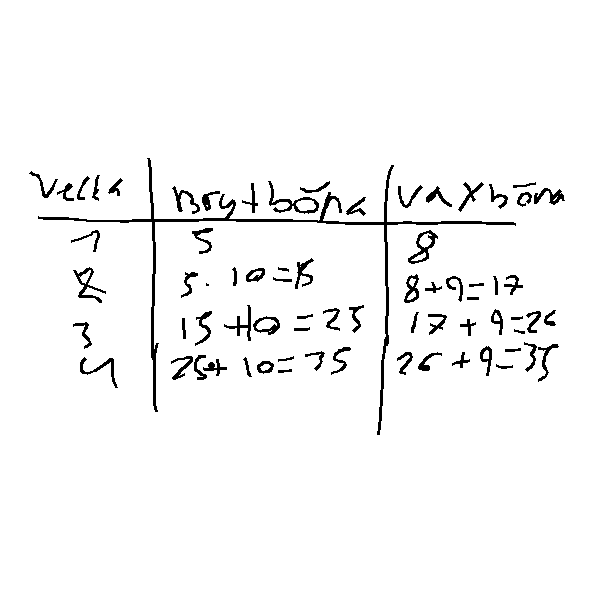 Vecka Brytböna Vaxböna
1 5 8
2 5. 10=15 8+9=17
3 15+10=25 17+9=26
4 25+10=35 26+9=35